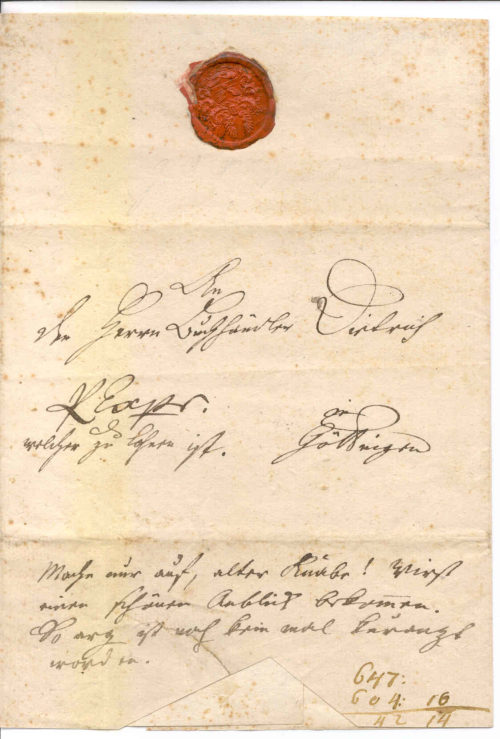 An
den Herrn Buchhändler Dietrich
in
welcher zu ist. Göttingen
Mache nur auf, alter Knabe! Wirst
einen schönen Anblick bekommen.
So arg ist noch kein mal
worden.
647:
604: 16
42 14